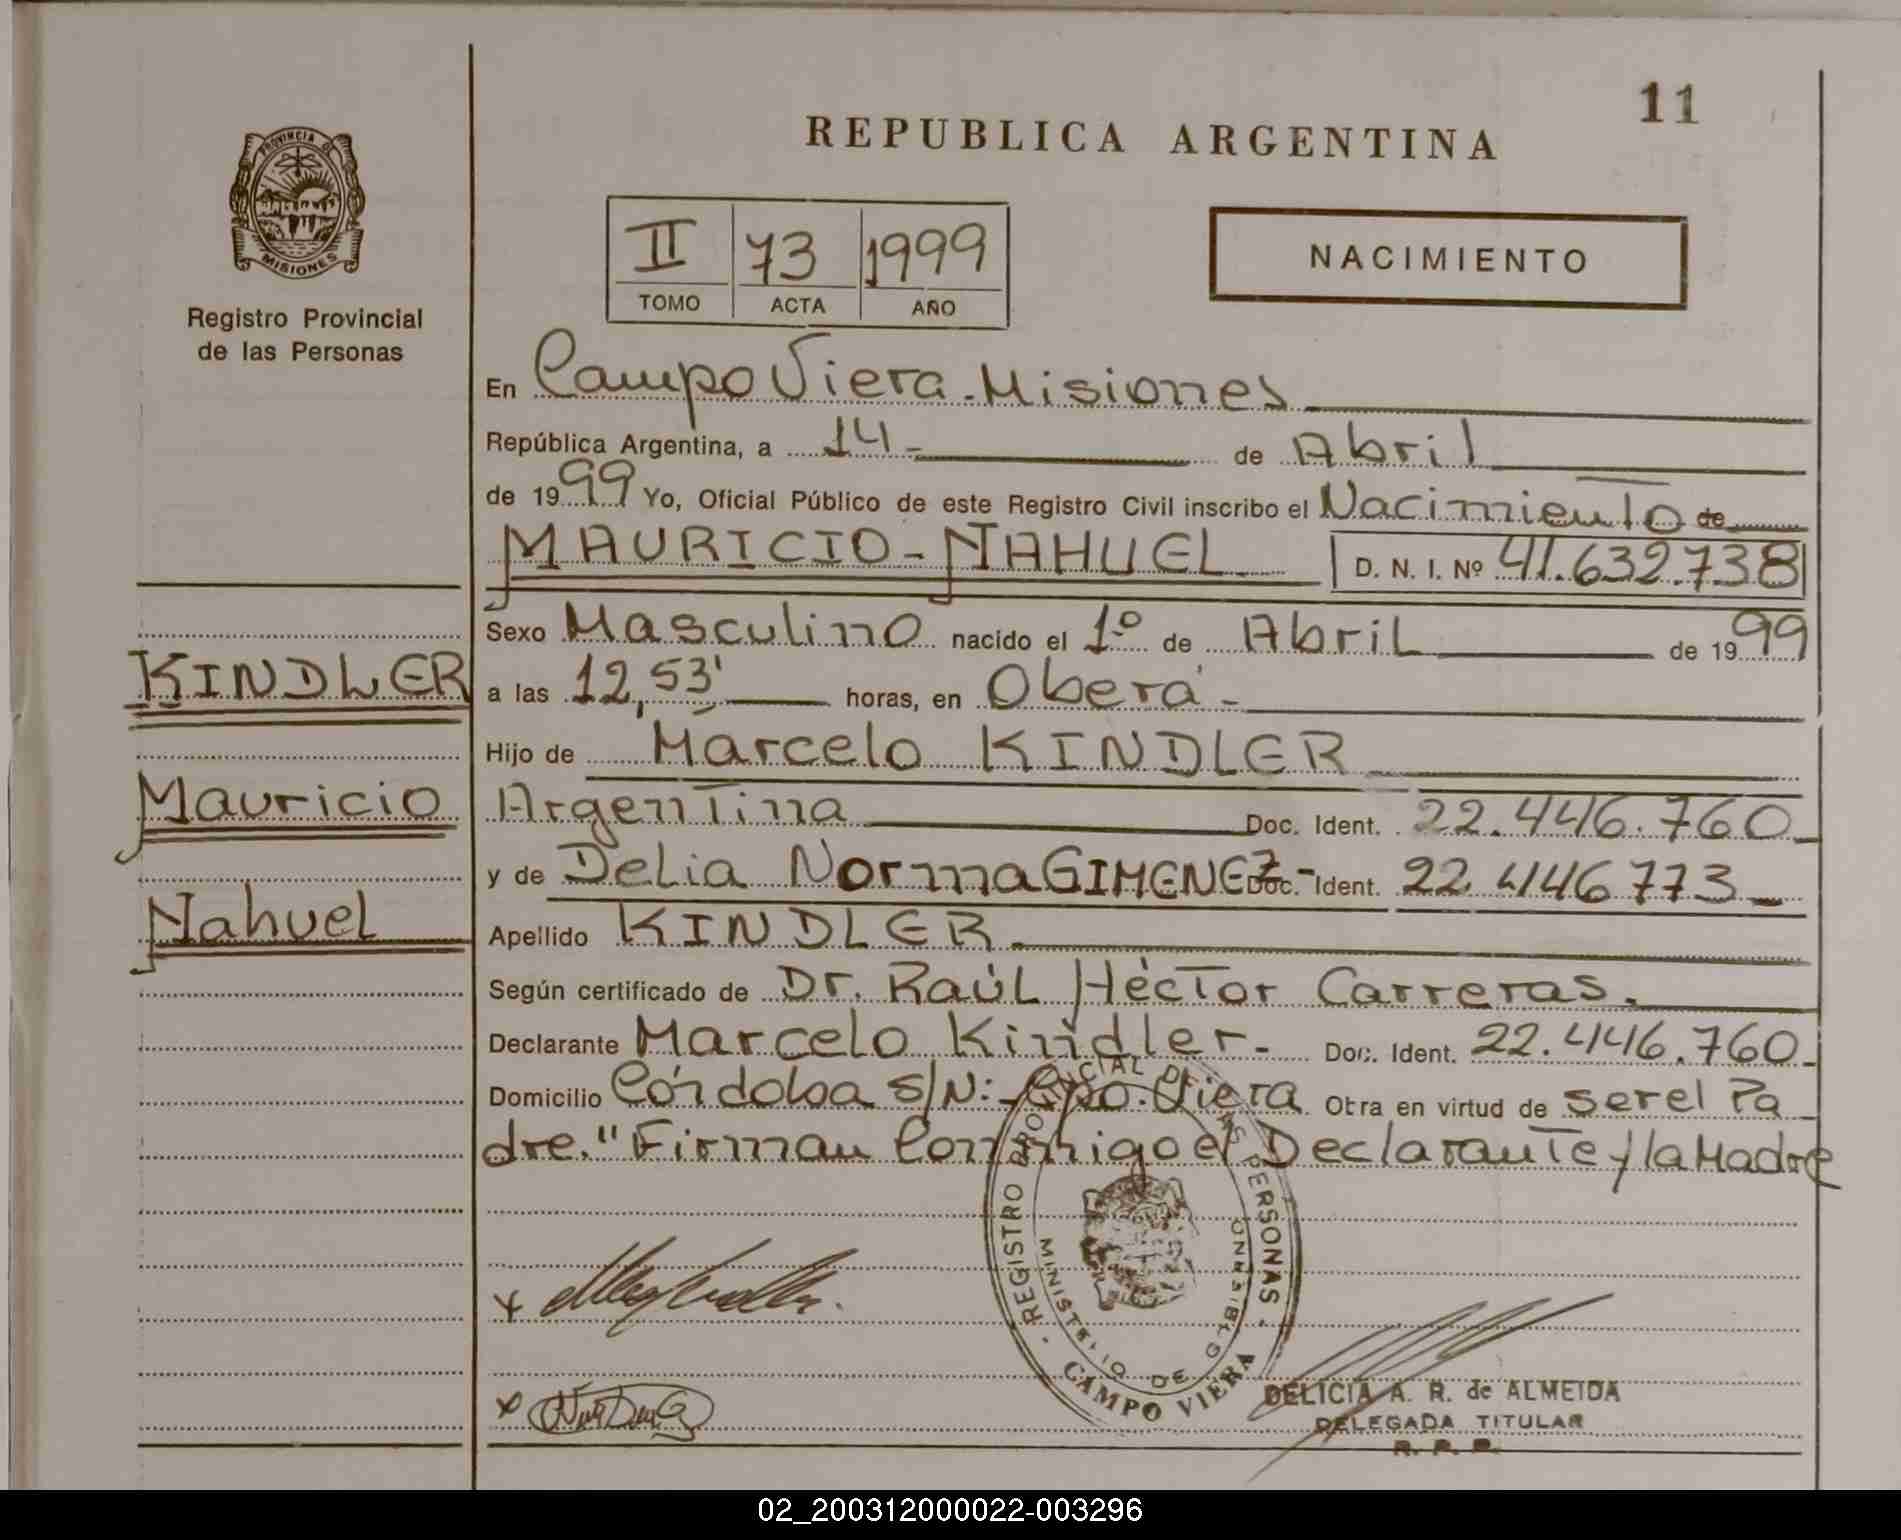 11
REPUBLICA ARGENTINA
PROVINCIA D
MISIONES
Registro Provincial
de las Personas
II 73 1999
TOMO ACTA AÑO
NACIMIENTO
En Campo Viera - Misiones
República Argentina, a 14 - de Abril
de 1999 Yo, Oficial Público de este Registro Civil inscribo el Nacimiento de
MAURICIO - NAHUEL D. N. I. Nº 41.632.738
Sexo Masculino nacido el 1º de Abril de 1999
KINDLER
a las 12,53' horas, en Oberá -
Hijo de Marcelo KINDLER
Mauricio
Argentina Doc. Ident. 22.446.760
y de Delia Norma GIMENEZ - Doc. Ident. 22.446773
Nahuel
Apellido KINDLER
Según certificado de Dr. Raúl Héctor Carreras.
Declarante Marcelo Kindler - Doc. Ident. 22.446.760
Domicilio Córdoba S/N: Cpo. Viera Otra en virtud de ser el Pa
dre." Firman Conmigo el Declarante y la Madre
REGISTRO PROVINCIAL DE LAS PERSONAS
MINISTERIO DE GOBIERNO
CAMPO VIERA
DELICIA A. R. de ALMEIDA
DELEGADA TITULAR
R. P. P.
02_200312000022-003296